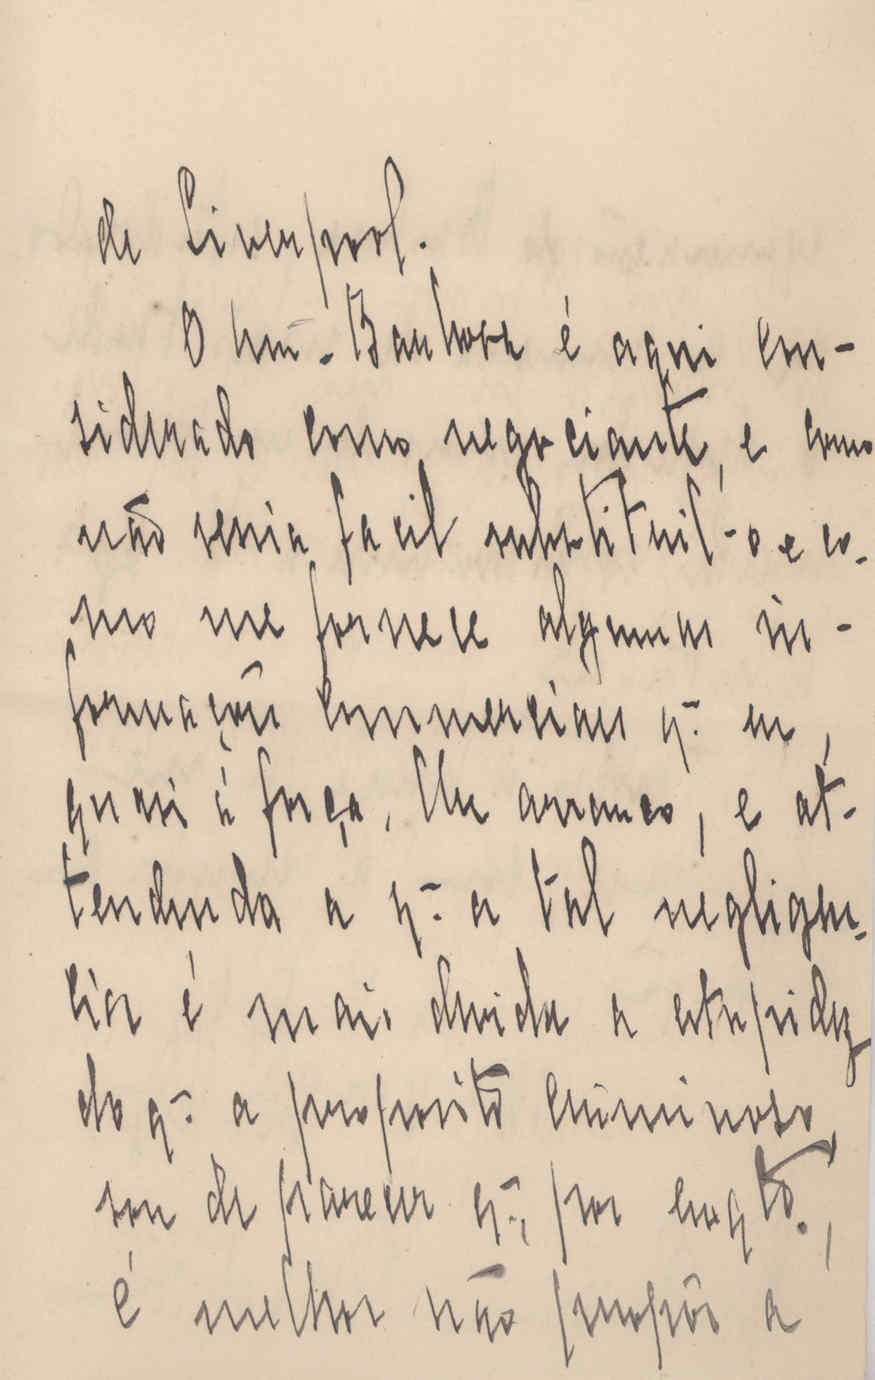 de Liverpool.
O Snr. é aqui con-
siderado como negociante, e como
não seria facil substituil-o e co-
mo me fornece algumas in-
formações commerciaes q. eu,
quasi á força, lhe arranco, e at-
tendendo a q. a tal negligen-
cia é mais devida a estupidez
do q. a proposito criminoso,
sou de parecer q., por emqto.,
é melhor não propôr a